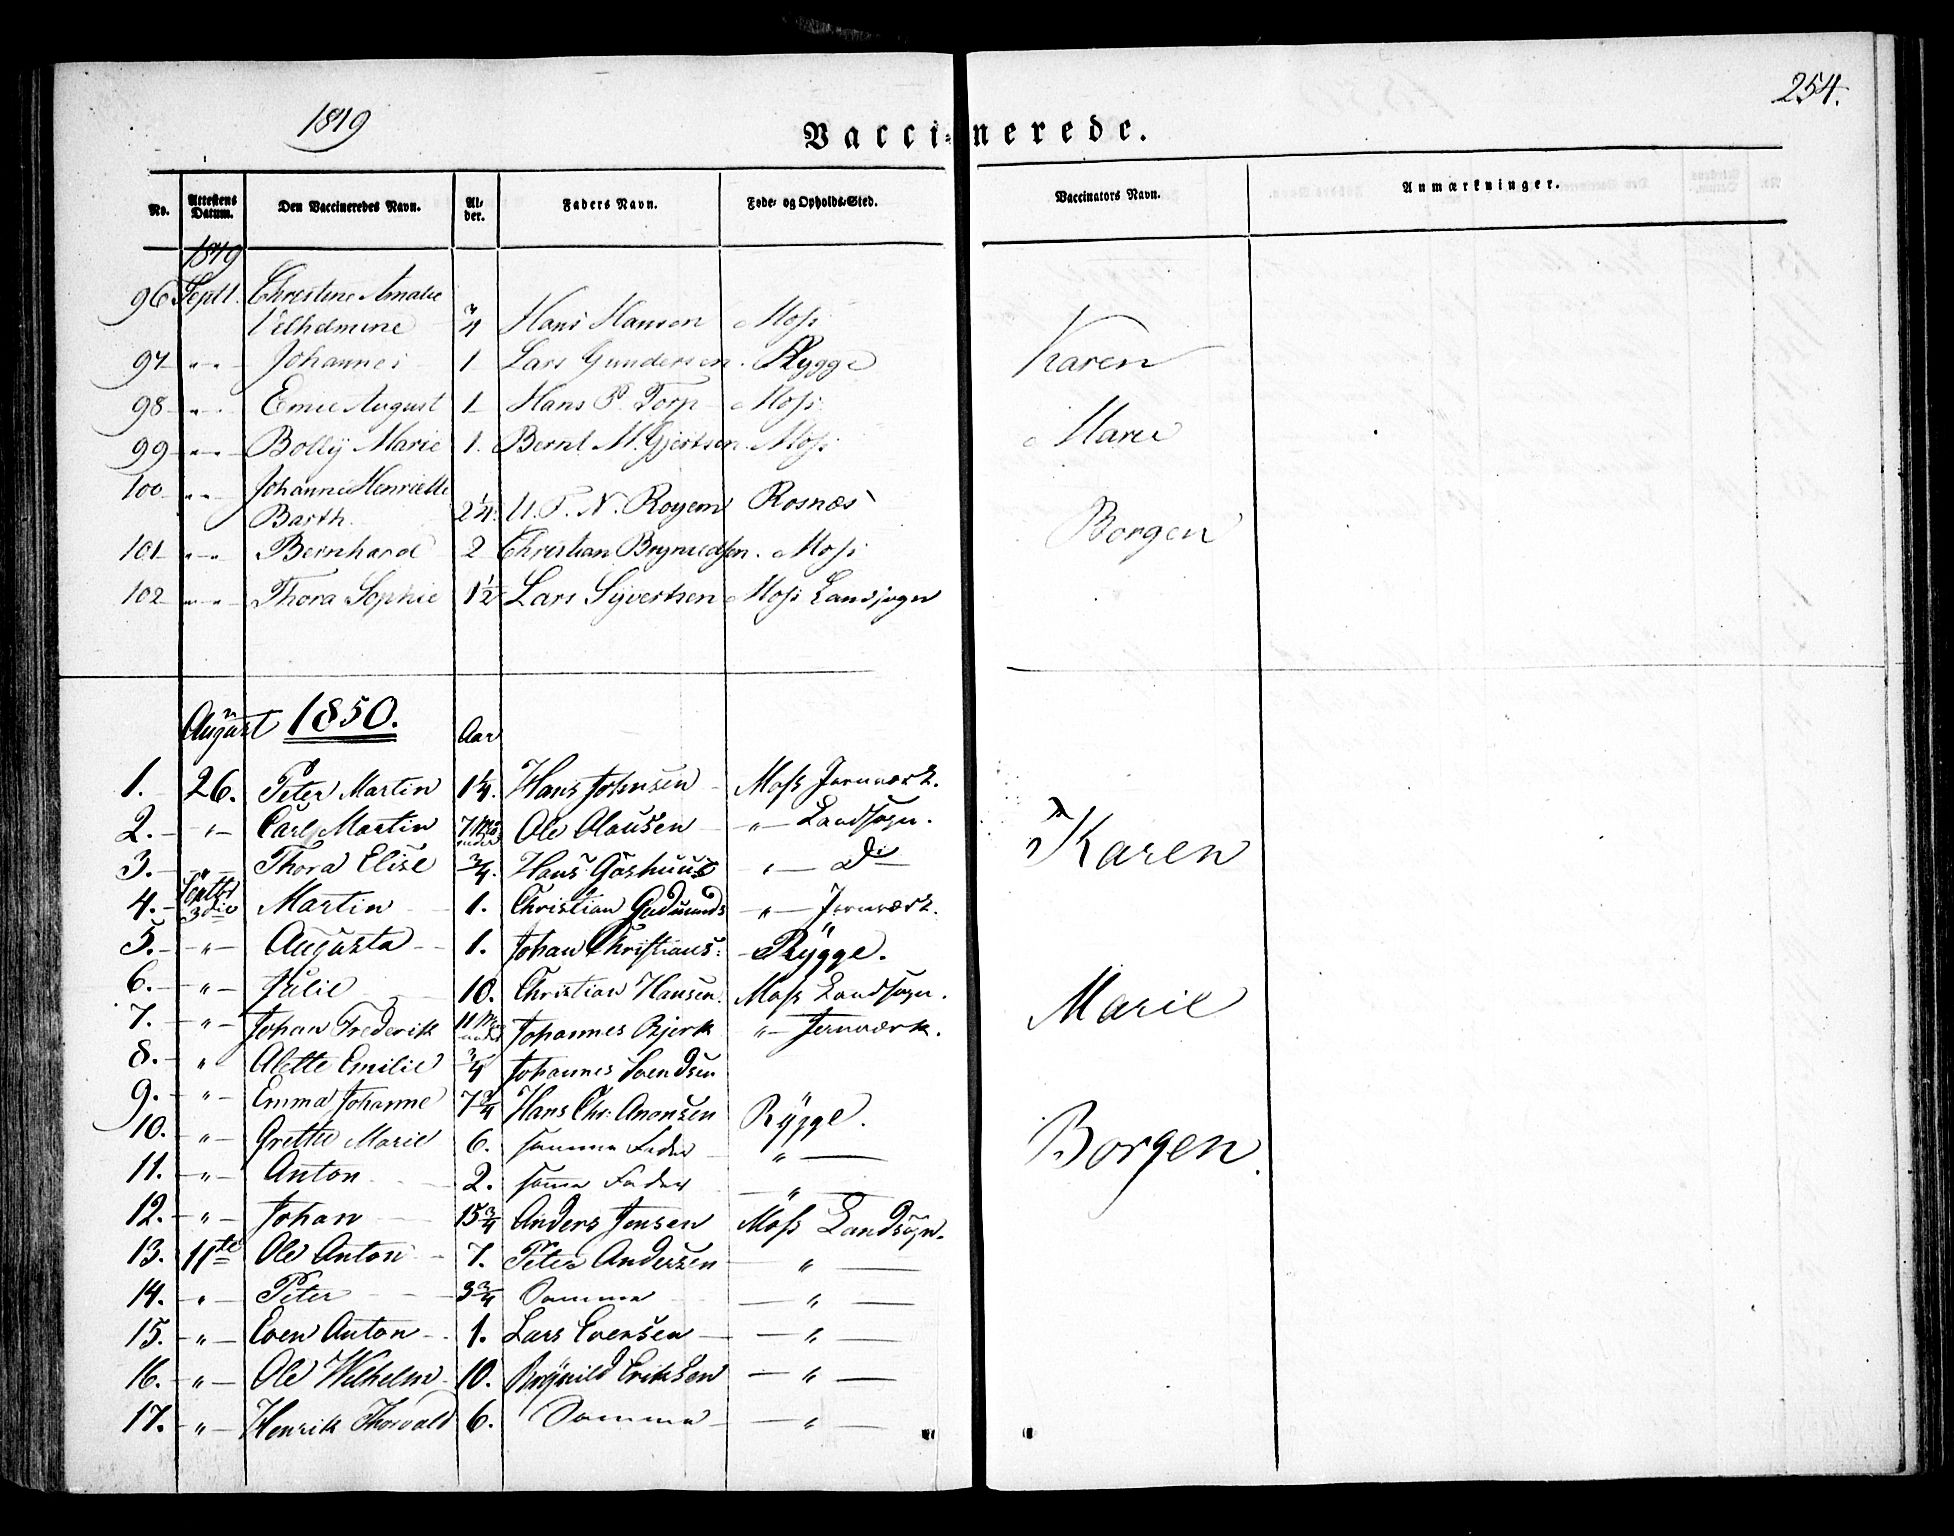 254.
1849
Vaccinerede.
No. Attestens Datum. Den Vaccineredes Navn. Alder. Faders Navn. Føde- og Opholds-Sted. Vaccinators Navn. Anmærkninger.
1849
96 Septl. Christine Amalie
Vilhelmine 3/4 Hans Hansen Moss
97 " Johannes 1 Lars Gundersen Rygge Karen
98 " Emil August 1 Hans P. Torp Moss
99 " Bolly Marie 1. Bernt M. Gjertsen Moss Marie
100 " Johanne Henriette
Barth. 2 1/4. N. Royem Rosnæs Borgen
101 " Bernhard 2 Christian Brynildsen. Moss
102 " Thora Sophie 1 1/2 Lars Syvertsen Moss Landsogn
August 1850. Aar
1. 26. Peter Martin 1 1/4. Hans Johnsen Moss Jernværk.
2. " Carl Martin 7 Maaneder Ole Olausen " Landsogn.
3. " Thora Elise 3/4. Hans Gashuus " Do Karen
4. Septbr 3die Martin 1. Christian Gudmunds " Jernværk.
5. " Augusta 1. Johan Christians: Rygge.
6. " Julie 10. Christian Hansen. Moss Landsogn.
7. " Johan Frederik 11 Maaneder Johannes Bjerk " Jernværk. Marie
8. " Alette Emilie 3/4 Johannes Svendsen
9. " Emma Johanne 7 3/4 Hans Chr: Anonsen Rygge.
10. " Grethe Marie 6. samme Fader " Borgen.
11. " Anton 2. samme Fader "
12. " Johan 15 3/4 Anders Jensen Moss Landsogn.
13. 11te Ole Anton 7. Peter Andersen "
14. " Peter 3 3/4 Samme "
15. " Even Anton 1. Lars Evensen "
16. " Ole Wilhelm 10. Brynild Eriksen "
17. " Henrik Thorvald 6. Samme "